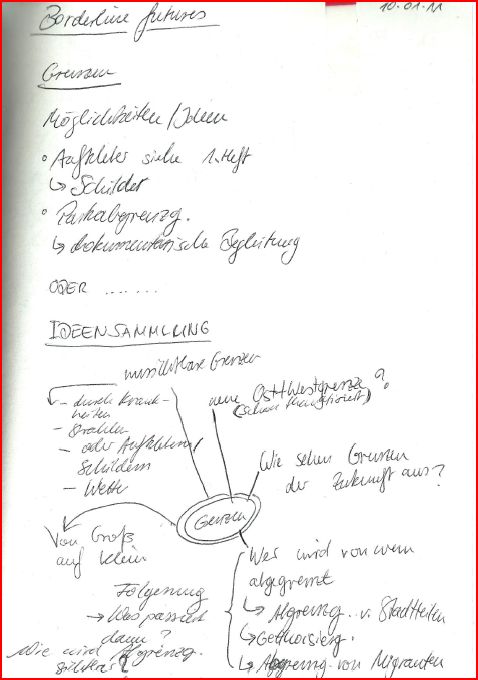 Borderline futures
10.01.11
Grenzen
Möglichkeiten/Ideen
• Aufkleber siehe 1. Heft
↳ Schilder
• Parkabgrenzg.
↳ dokumentarische Begleitung
ODER .......
IDEENSAMMLUNG
unsichtbare Grenzen
- durch Krank-
heiten
- Strahlen
- oder Aufklebern/
Schildern
- Wetter
neue Ost+Westgrenze?
(schon thematisiert)
Wie sehen Grenzen
der Zukunft aus?
Grenzen
Von Groß
auf klein
Wer wird von wem
abgegrenzt
↳ Abgrenzg. v. Stadtteilen
↳ Gettoisierg.
↳ Abgrenzg. von Migranten
Folgerung
→ Was passiert
dann?
Wie wird Abgrenzg.
sichtbar?